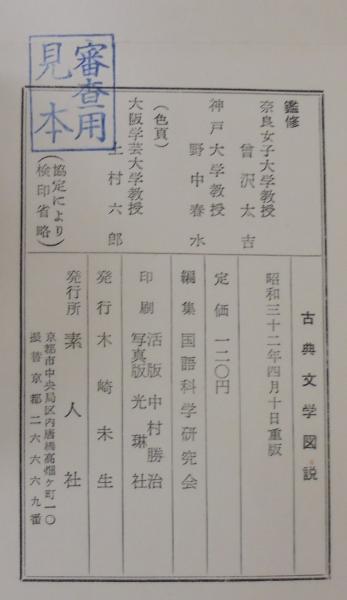 審査用
見本
古典文学図説
昭和三十二年四月十日重版
定価 一二〇円
編集 国語科学研究会
印刷 活版 中村勝治
写真版 光琳社
発行 木崎未生
発行所 素人社
京都市中央局区内唐橋高畑ケ町一〇
振替京都二六六六九番
監修
奈良女子大学教授
曾沢太吉
神戸大学教授
野中春水
(色頁)
大阪学芸大学教授
上村六郎
(協定により
検印省略)